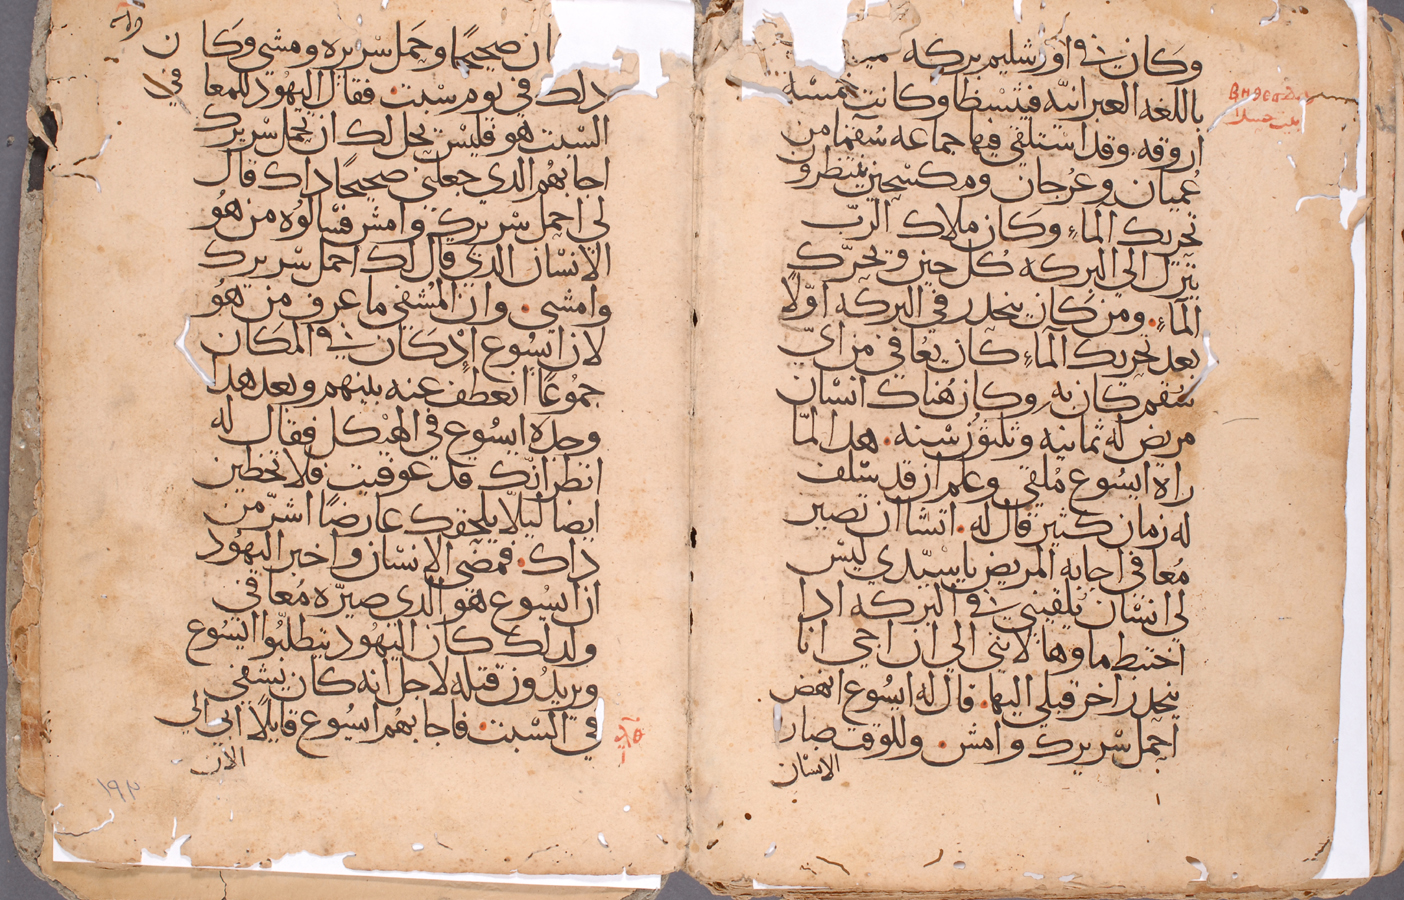 وكان في اورشليم بركه
باللغه العبرانيه فيتسطا وكانت خمسة
اروقه. وقد استلقى فيها جماعه سقما من
عُميان وعرُجان ومكسحين ينتظرو
تحريك الماء، وكان ملاك الربّ
ينزل الي البركه كُل حين ويحرّك
الماء. ومن كان ينحدر في البركه اوّلاً
بعد تحريك الماء كان يُعافي من ايّ
سُقم كان به وكان هُناك انسان
مريض له ثمانيه وثلثون سنه. هدا لمّا
راه ايسُوع مُلقي وعلم ان قد سلف
له زمان كثير قال له. اتشا ان تصير
مُعافي اجابه المريض ياسيّدي ليس
لي انسان يُلقيني في البركه ادا
اختبط ماوها لانني الي ان اجي انا
ينحدر اخر قبلي اليها. قال له ايسُوع انهض
احمل سريرك وامش. وللوقت صار
الانسان
ان صحيحًا وحمل سريره ومشي وكان
داك في يوم سبت. فقال اليهُود للمعافي
السبت هو فليس يحل لك ان تحمل سريرك
اجابهُم الدي جعلني صحيحًا داك قال
لي احمل سريرك وامش فسالوُه من هوُ
الانسان الدي قال لك احمل سريرك
وامشي. وان المُشفي ما عرف من هوُ
لان ايسُوع اذ كان في المكان
جمُوعًا انعطف عنه بينهم وبعد هدا
وجده ايسُوع في الهيكل فقال له
انظر انّك قد عوفيت فلا تخطين
ايضا ليلّا يلحقك عارضًا اشرّ من
داك. فمضى الانسان واخبر اليهُود
ان ايسُوع هو الدي صيرّه مُعافي
ولدلك كان اليهُود يتطلبُوا ايسُوع
ويريدُون قتله لاجل انه كان يشفي
في السبت. فاجابهُم ايسُوع قايلًا ابي الي
الان
١٩٣